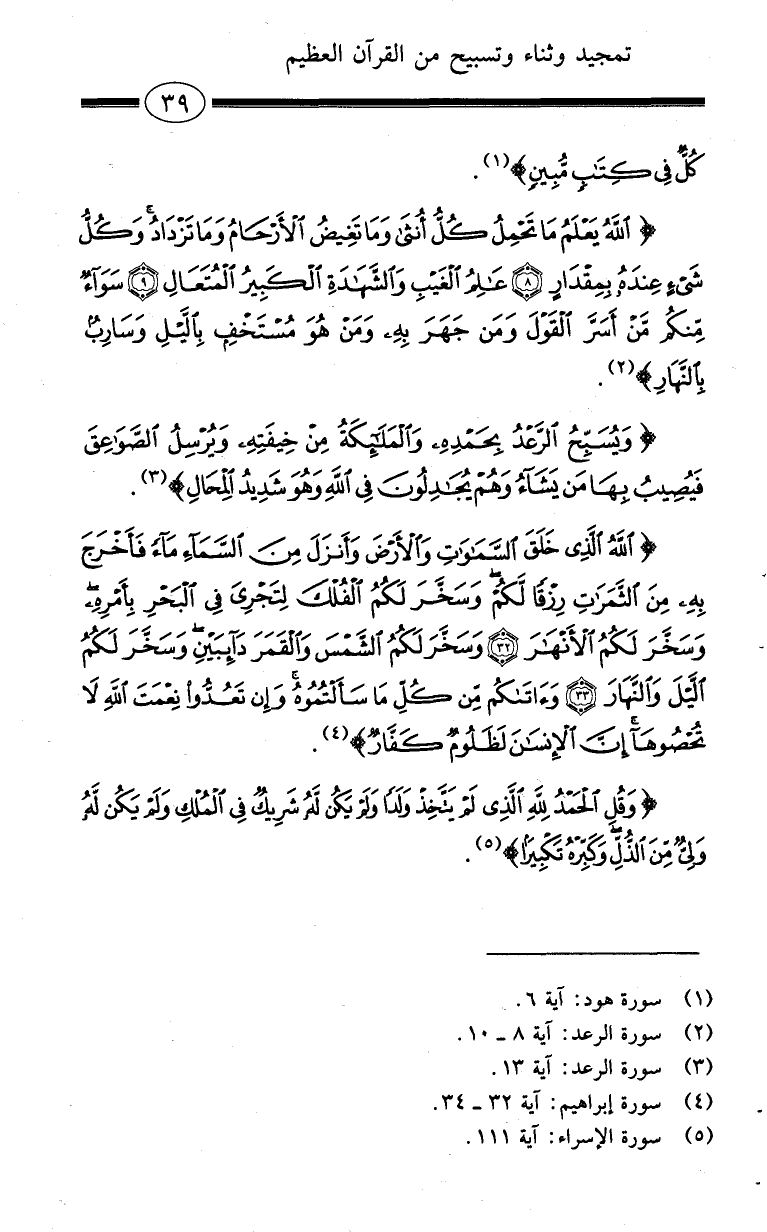 تمجيد وثناء وتسبيح من القرآن العظيم
٣٩
كُلٌّ فِي كِتَٰبٍ مُّبِينٍ﴾(١).
﴿ ٱللَّهُ يَعْلَمُ مَا تَحْمِلُ كُلُّ أُنثَىٰ وَمَا تَغِيضُ ٱلْأَرْحَامُ وَمَا تَزْدَادُ ۚ وَكُلُّ
شَىْءٍ عِندَهُۥ بِمِقْدَارٍ ۝٨ عَٰلِمُ ٱلْغَيْبِ وَٱلشَّهَٰدَةِ ٱلْكَبِيرُ ٱلْمُتَعَالِ ۝٩ سَوَآءٌ
مِّنكُم مَّنْ أَسَرَّ ٱلْقَوْلَ وَمَن جَهَرَ بِهِۦ وَمَنْ هُوَ مُسْتَخْفٍۭ بِٱلَّيْلِ وَسَارِبٌۢ
بِٱلنَّهَارِ﴾(٢).
﴿ وَيُسَبِّحُ ٱلرَّعْدُ بِحَمْدِهِۦ وَٱلْمَلَٰٓئِكَةُ مِنْ خِيفَتِهِۦ وَيُرْسِلُ ٱلصَّوَٰعِقَ
فَيُصِيبُ بِهَا مَن يَشَآءُ وَهُمْ يُجَٰدِلُونَ فِي ٱللَّهِ وَهُوَ شَدِيدُ ٱلْمِحَالِ﴾(٣).
﴿ ٱللَّهُ ٱلَّذِى خَلَقَ ٱلسَّمَٰوَٰتِ وَٱلْأَرْضَ وَأَنزَلَ مِنَ ٱلسَّمَآءِ مَآءً فَأَخْرَجَ
بِهِۦ مِنَ ٱلثَّمَرَٰتِ رِزْقًا لَّكُمْ ۖ وَسَخَّرَ لَكُمُ ٱلْفُلْكَ لِتَجْرِىَ فِي ٱلْبَحْرِ بِأَمْرِهِۦ ۖ
وَسَخَّرَ لَكُمُ ٱلْأَنْهَٰرَ ۝٣٢ وَسَخَّرَ لَكُمُ ٱلشَّمْسَ وَٱلْقَمَرَ دَآئِبَيْنِ ۖ وَسَخَّرَ لَكُمُ
ٱلَّيْلَ وَٱلنَّهَارَ ۝٣٣ وَءَاتَىٰكُم مِّن كُلِّ مَا سَأَلْتُمُوهُ ۚ وَإِن تَعُدُّوا۟ نِعْمَتَ ٱللَّهِ لَا
تُحْصُوهَآ ۗ إِنَّ ٱلْإِنسَٰنَ لَظَلُومٌ كَفَّارٌ﴾(٤).
﴿ وَقُلِ ٱلْحَمْدُ لِلَّهِ ٱلَّذِى لَمْ يَتَّخِذْ وَلَدًا وَلَمْ يَكُن لَّهُۥ شَرِيكٌ فِي ٱلْمُلْكِ وَلَمْ يَكُن لَّهُۥ
وَلِىٌّ مِّنَ ٱلذُّلِّ ۖ وَكَبِّرْهُ تَكْبِيرًۢا﴾(٥).
(١) سورة هود: آية ٦.
(٢) سورة الرعد: آية ٨ ـ ١٠.
(٣) سورة الرعد: آية ١٣.
(٤) سورة إبراهيم: آية ٣٢ ـ ٣٤.
(٥) سورة الإسراء: آية ١١١.